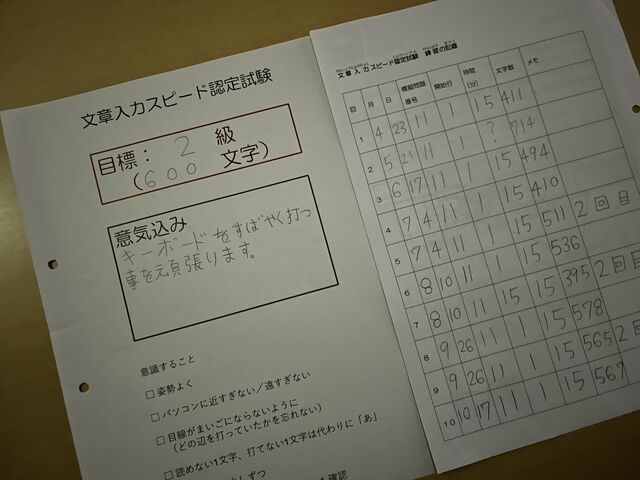 文章入力スピード認定試験
目標: 2 級
(600 文字)
意気込み
キーボードをすばやく打つ
事を頑張ります。
意識すること
□ 姿勢よく
□ パソコンに近すぎない/遠すぎない
□ 目線がまいごにならないように
(どの辺を打っていたかを忘れない)
□ 読めない1文字、打てない1文字は代わりに「あ」
文章入力スピード認定試験 練習の記録
回 月 日 模擬問題番号 開始行 時間(分) 文字数 メモ
1 4 23 11 1 15 411
2 5 21 11 1 ? 714
3 6 17 11 1 15 494
4 7 4 11 1 15 410
5 7 4 11 1 15 511 2回目
6 8 10 11 1 15 536
7 8 10 11 15 15 395 2回目
8 9 26 11 1 15 578
9 9 26 11 1 15 565 2回
10 10 17 11 1 15 567